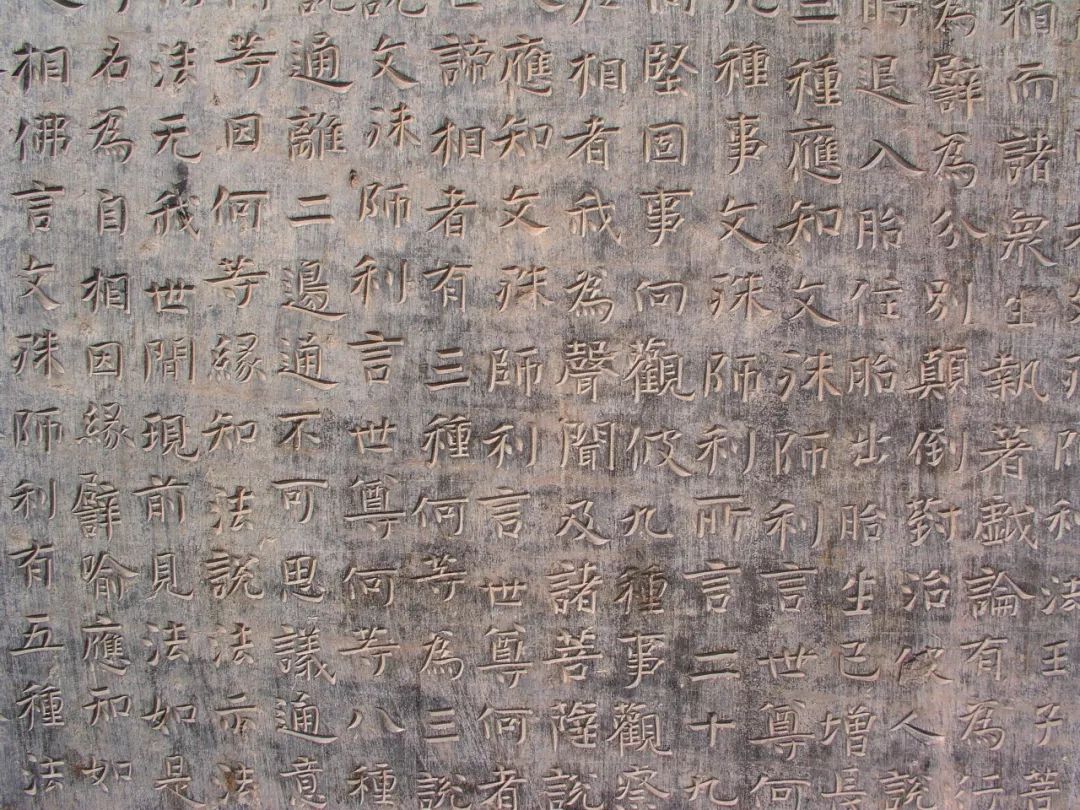 師利法王子菩
相而諸眾生執著戲論有為行
為譬為分別顛倒對治彼人說
時退入胎住胎出胎生已增長
三種應知文殊師利言世尊何
九種事文殊師利所言二十九
堅固事向觀彼九種事觀察
相者我為聲聞及諸菩薩說
應知文殊師利言世尊何者
諦相者有三種何等為三說
說文殊師利言世尊何等八種
說通離二邊通不可思議通意
等因何等緣知法說法示法
法无我世間現前見法如是
名為自相因緣譬喻應知如
相佛言文殊師利有五種法